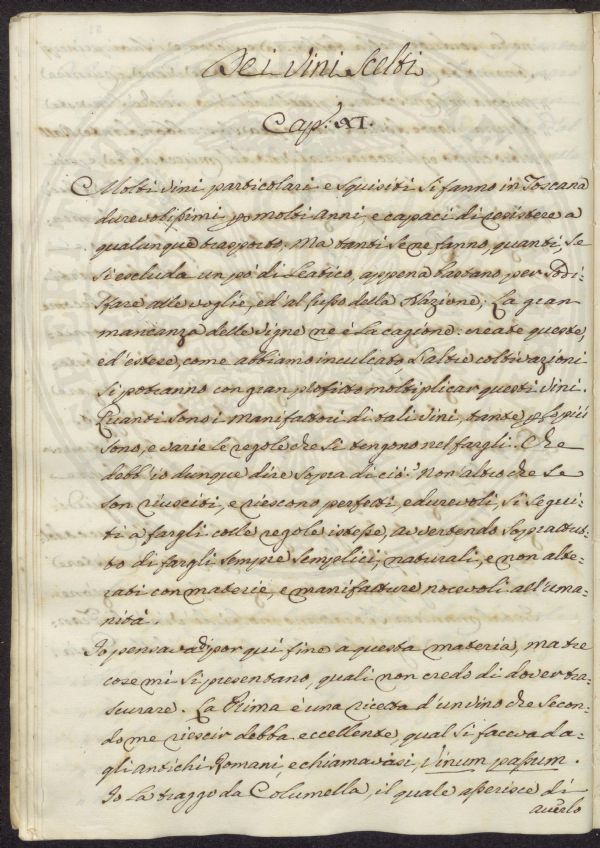 Dei Vini Scelti
Cap: XI.
Molti vini particolari e squisiti si fanno in Toscana
durevolissimi p molti anni, e capaci di resistere a
qualunque trasporto. Ma tanti se ne fanno, quanti, se
si escluda un pò di Leatico, appena bastano, per sodi-
sfare alle voglie, ed al lusso della Nazione; La gran
mancanza delle vigne ne è la cagione: create queste,
ed estese, come abbiamo inculcato, l'altre coltivazioni
si potranno con gran profitto moltiplicar questi vini.
Quanti sono i Manifattori di tali vini, tante p lo più
sono, e varie le regole che si tengono nel fargli. Che
debb'io dunque dire sopra di ciò? Non altro che se
son riusciti, e riescono perfetti, e durevoli, si segui-
ti a fargli colle regole istesse, avvertendo soprattut-
to di fargli sempre semplici, naturali, e non alte-
rati con materie, e manifatture nocevoli all'uma-
nità.
Io pensava di por qui fine a questa materia, ma tre
cose mi si presentano, quali non credo di dover tra-
scurare. La Prima è una ricetta d'un vino che secon-
do me riescir debba eccellente, qual si faceva da-
gli antichi Romani, e chiamavasi, Vinum passum.
Io la traggo da Columella, il quale asserisce di
averlo